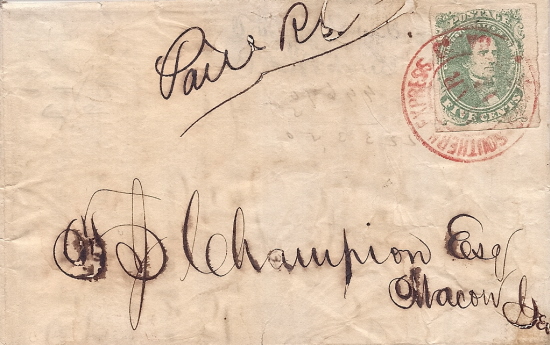 Paid
POSTAGE
FIVE CENTS
SOUTHERN EXPRESS
J Champion Esq
Macon Geo